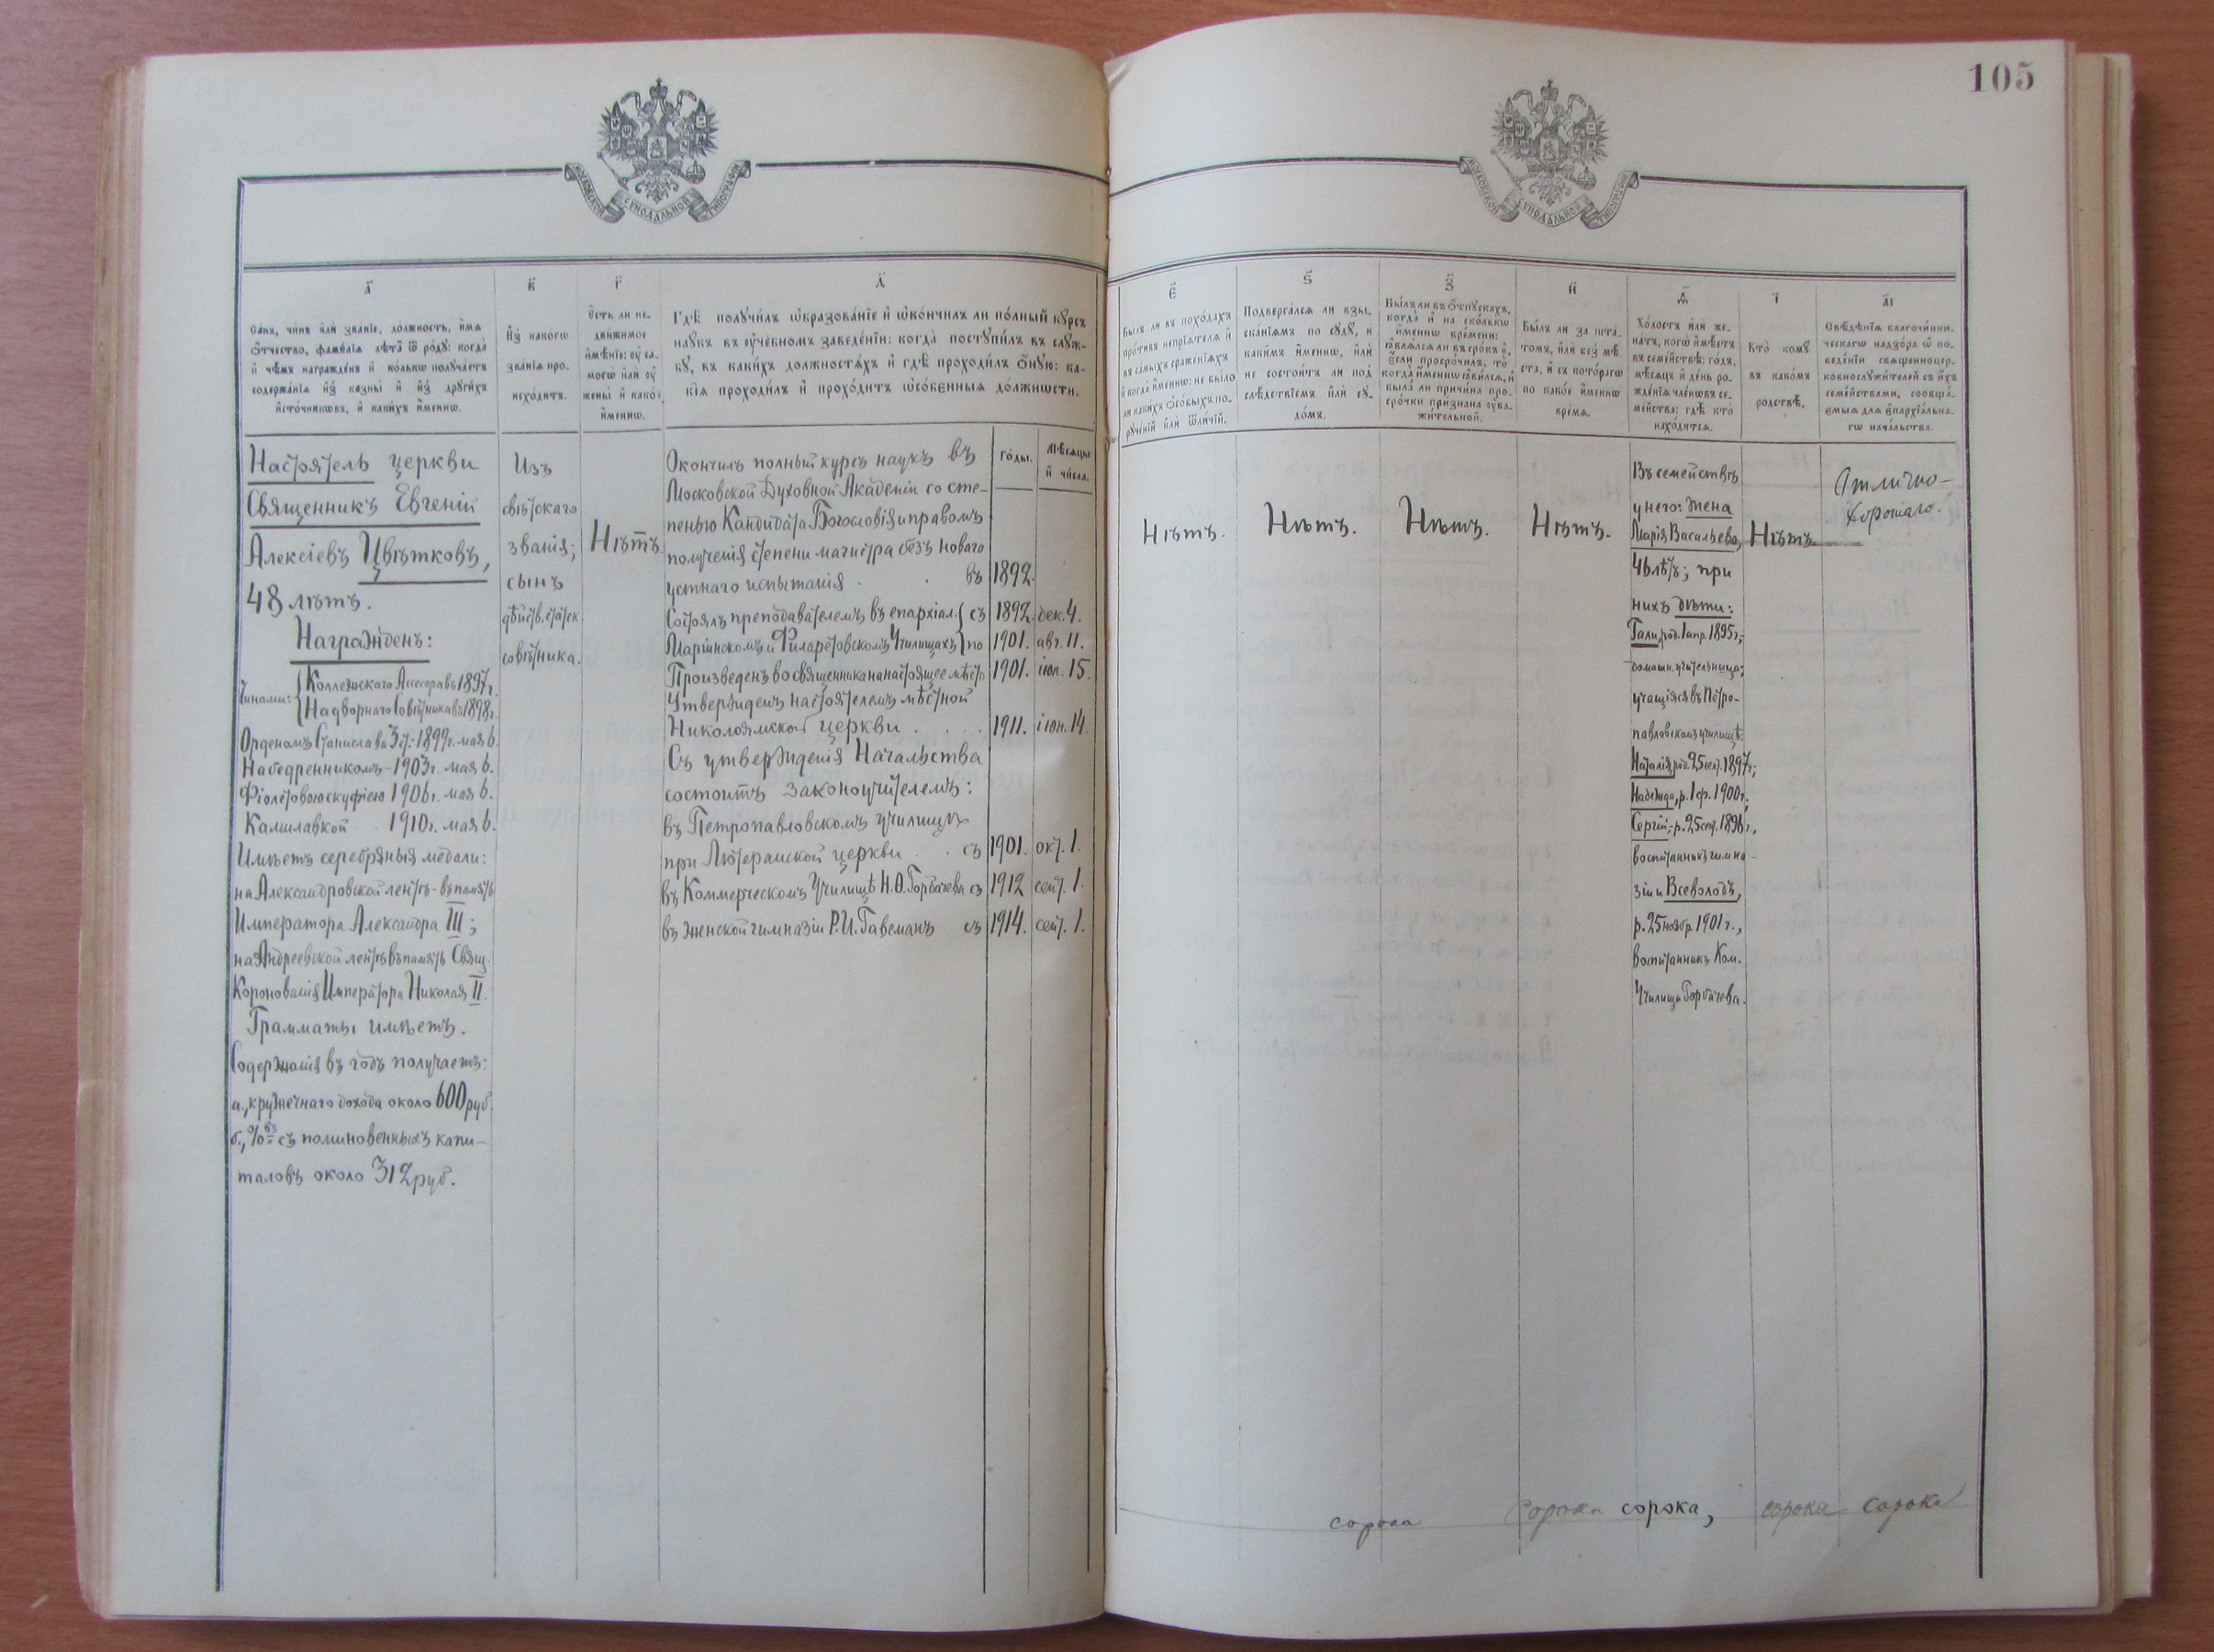 105
МОСКОВСКОЙ СѴНОДАЛЬНОЙ ТИПОГРАФІИ
МОСКОВСКОЙ СѴНОДАЛЬНОЙ ТИПОГРАФІИ
а҃
Санъ, чинъ и҆лѝ званїе, должность, и҆мѧ
ѻ҆тчество, фамилїа лѣтa ѿ родꙋ: когда̀
и҆ чѣмъ награжденъ и҆ колькѡ получаетъ
содержанїѧ и҆з̾ казны̀ и҆ и҆з̾ дрꙋгихъ
и҆сточниковъ, и҆ какихъ и҆меннѡ.
в҃
И҆з̾ какогѡ
званїѧ про-
исходитъ.
г҃
Єсть ли не-
движимое
и҆мѣнїе: ᲂу҆ са-
могѡ̀ и҆лѝ ᲂу҆
жены̀ и҆ какое
и҆меннѡ.
д҃
Гдѣ̀ получилъ ѡ҆бразованїе и҆ ѡ҆кончилъ ли полный кꙋрсъ
наꙋкъ въ ᲂу҆чебномъ заведенїи: когда̀ постꙋпилъ въ слꙋж-
бꙋ, въ какихъ должностѧхъ и҆ гдѣ̀ проходилъ ѻ҆нꙋю: ка-
кїѧ проходилъ и҆ проходитъ ѡ҆собенныѧ должнѡсти.
Годы.
Мѣсѧцы
и҆ числа.
Настоятель церкви
Священникъ Евгеній
Алексіевъ Цвѣтковъ,
48 лѣтъ.
Награжденъ:
Чинами: Коллежскаго Ассесора въ 1897г.
Надворнаго Совѣтника въ 1898г.
Орденомъ Станислава 3 ст.-1899г. мая 6.
Набедренникомъ-1903г. мая 6.
Фіолетовою скуфіею 1906г. мая 6.
Камилавкой . 1910г. мая 6.
Имѣетъ серебряныя медали:
на Александровской лентѣ-въ память
Императора Александра III;
на Андреевской лентѣ въ память Свящ.
Коронованія Императора Николая II.
Грамматы имѣетъ.
Содержанія въ годъ получаетъ:
а., кружечнаго дохода около 600 руб.
б., %въ съ поминовенныхъ капи-
таловъ около 312 руб.
Изъ
свѣтскаго
званія;
сынъ
дѣйств. статск.
совѣтника.
Нѣтъ.
Окончилъ полный курсъ наукъ въ
Московской Духовной Академіи со сте-
пенью Кандидата Богословія и правомъ
полученія степени магистра безъ новаго
устнаго испытанія . . въ 1892.
Состоялъ преподавателемъ въ епархіал. съ 1892. дек. 4.
Маріинскомъ и Филаретовскомъ Училищахъ по 1901. авг. 11.
Произведенъ во священника на настоящее мѣсто 1901. іюл. 15.
Утвержденъ настоятелемъ мѣстной
Николоямской церкви . . . 1911. іюн. 14.
Съ утвержденія Начальства
состоитъ законоучителемъ:
въ Петропавловскомъ училищѣ
при Лютеранской церкви . . съ 1901. окт. 1.
въ Коммерческомъ Училищѣ Н.О. Горбачева съ 1912 сент. 1.
въ женской гимназіи Р.И. Гавеманъ съ 1914. сент. 1.
є҃
Былъ ли въ походахъ
противъ непрїѧтелѧ и҆
въ самыхъ сраженїѧхъ
и҆ когда̀ и҆меннѡ: не было
ли какихъ ѻ҆собыхъ по-
рꙋченїй и҆лѝ ѿличїй.
ѕ҃
Подвергалсѧ ли взы-
сканїѧмъ по сꙋдꙋ, и҆
какимъ и҆меннѡ, и҆лѝ
не состоитъ ли под̾
слѣдствїемъ и҆лѝ сꙋ-
домъ.
з҃
Былъ ли въ ѿпꙋскахъ,
когда̀ и҆ на сколькѡ
и҆меннѡ времени:
ꙗ҆влѧлсѧ ли въ срокъ и҆,
є҆сли просрочилъ, то
когда̀ и҆меннѡ ꙗ҆вилсѧ, и҆
была ли причина про-
срочки признана ᲂу҆ва-
жительной.
и҃
Былъ ли за шта-
томъ, и҆лѝ без̾ мѣ-
ста, и҆ съ которагѡ
по какое и҆меннѡ
времѧ.
ѳ҃
Холостъ и҆лѝ же-
натъ, когѡ и҆мѣетъ
въ семействѣ: годъ,
мѣсѧцъ и҆ день ро-
жденїѧ членѡвъ се-
мейства; гдѣ̀ кто
находитсѧ.
і҃
Кто̀ комꙋ
въ какомъ
родствѣ.
а҃і
Свѣдѣнїѧ благочинни-
ческагѡ надзора ѡ҆ по-
веденїи сщ҃енноцер-
ковнослꙋжителей съ и҆хъ
семействами, сообща-
ємыѧ для є҆пархїальна-
гѡ начальства.
Нѣтъ.
Нѣтъ.
Нѣтъ.
Нѣтъ.
Въ семействѣ
у него: жена
Марія Васильева,
46 лѣтъ; при
нихъ дѣти:
Гали, род. 1 апр. 1895г.;
домашн. учительница;
учащіяся въ Петро-
павловскомъ училищѣ:
Наталія, род. 25 сент. 1897г.;
Надежда, р. 1 ф. 1900г.;
Сергій,-р. 25 сент. 1896г.,
воспитанникъ гимна-
зіи и Всеволодъ,
р. 25 ноябр. 1901г.,
воспитанникъ Ком.
Училища Горбачева.
Нѣтъ.
Отлично-
хорошаго.
сорока сорока сорока, сорока сорока